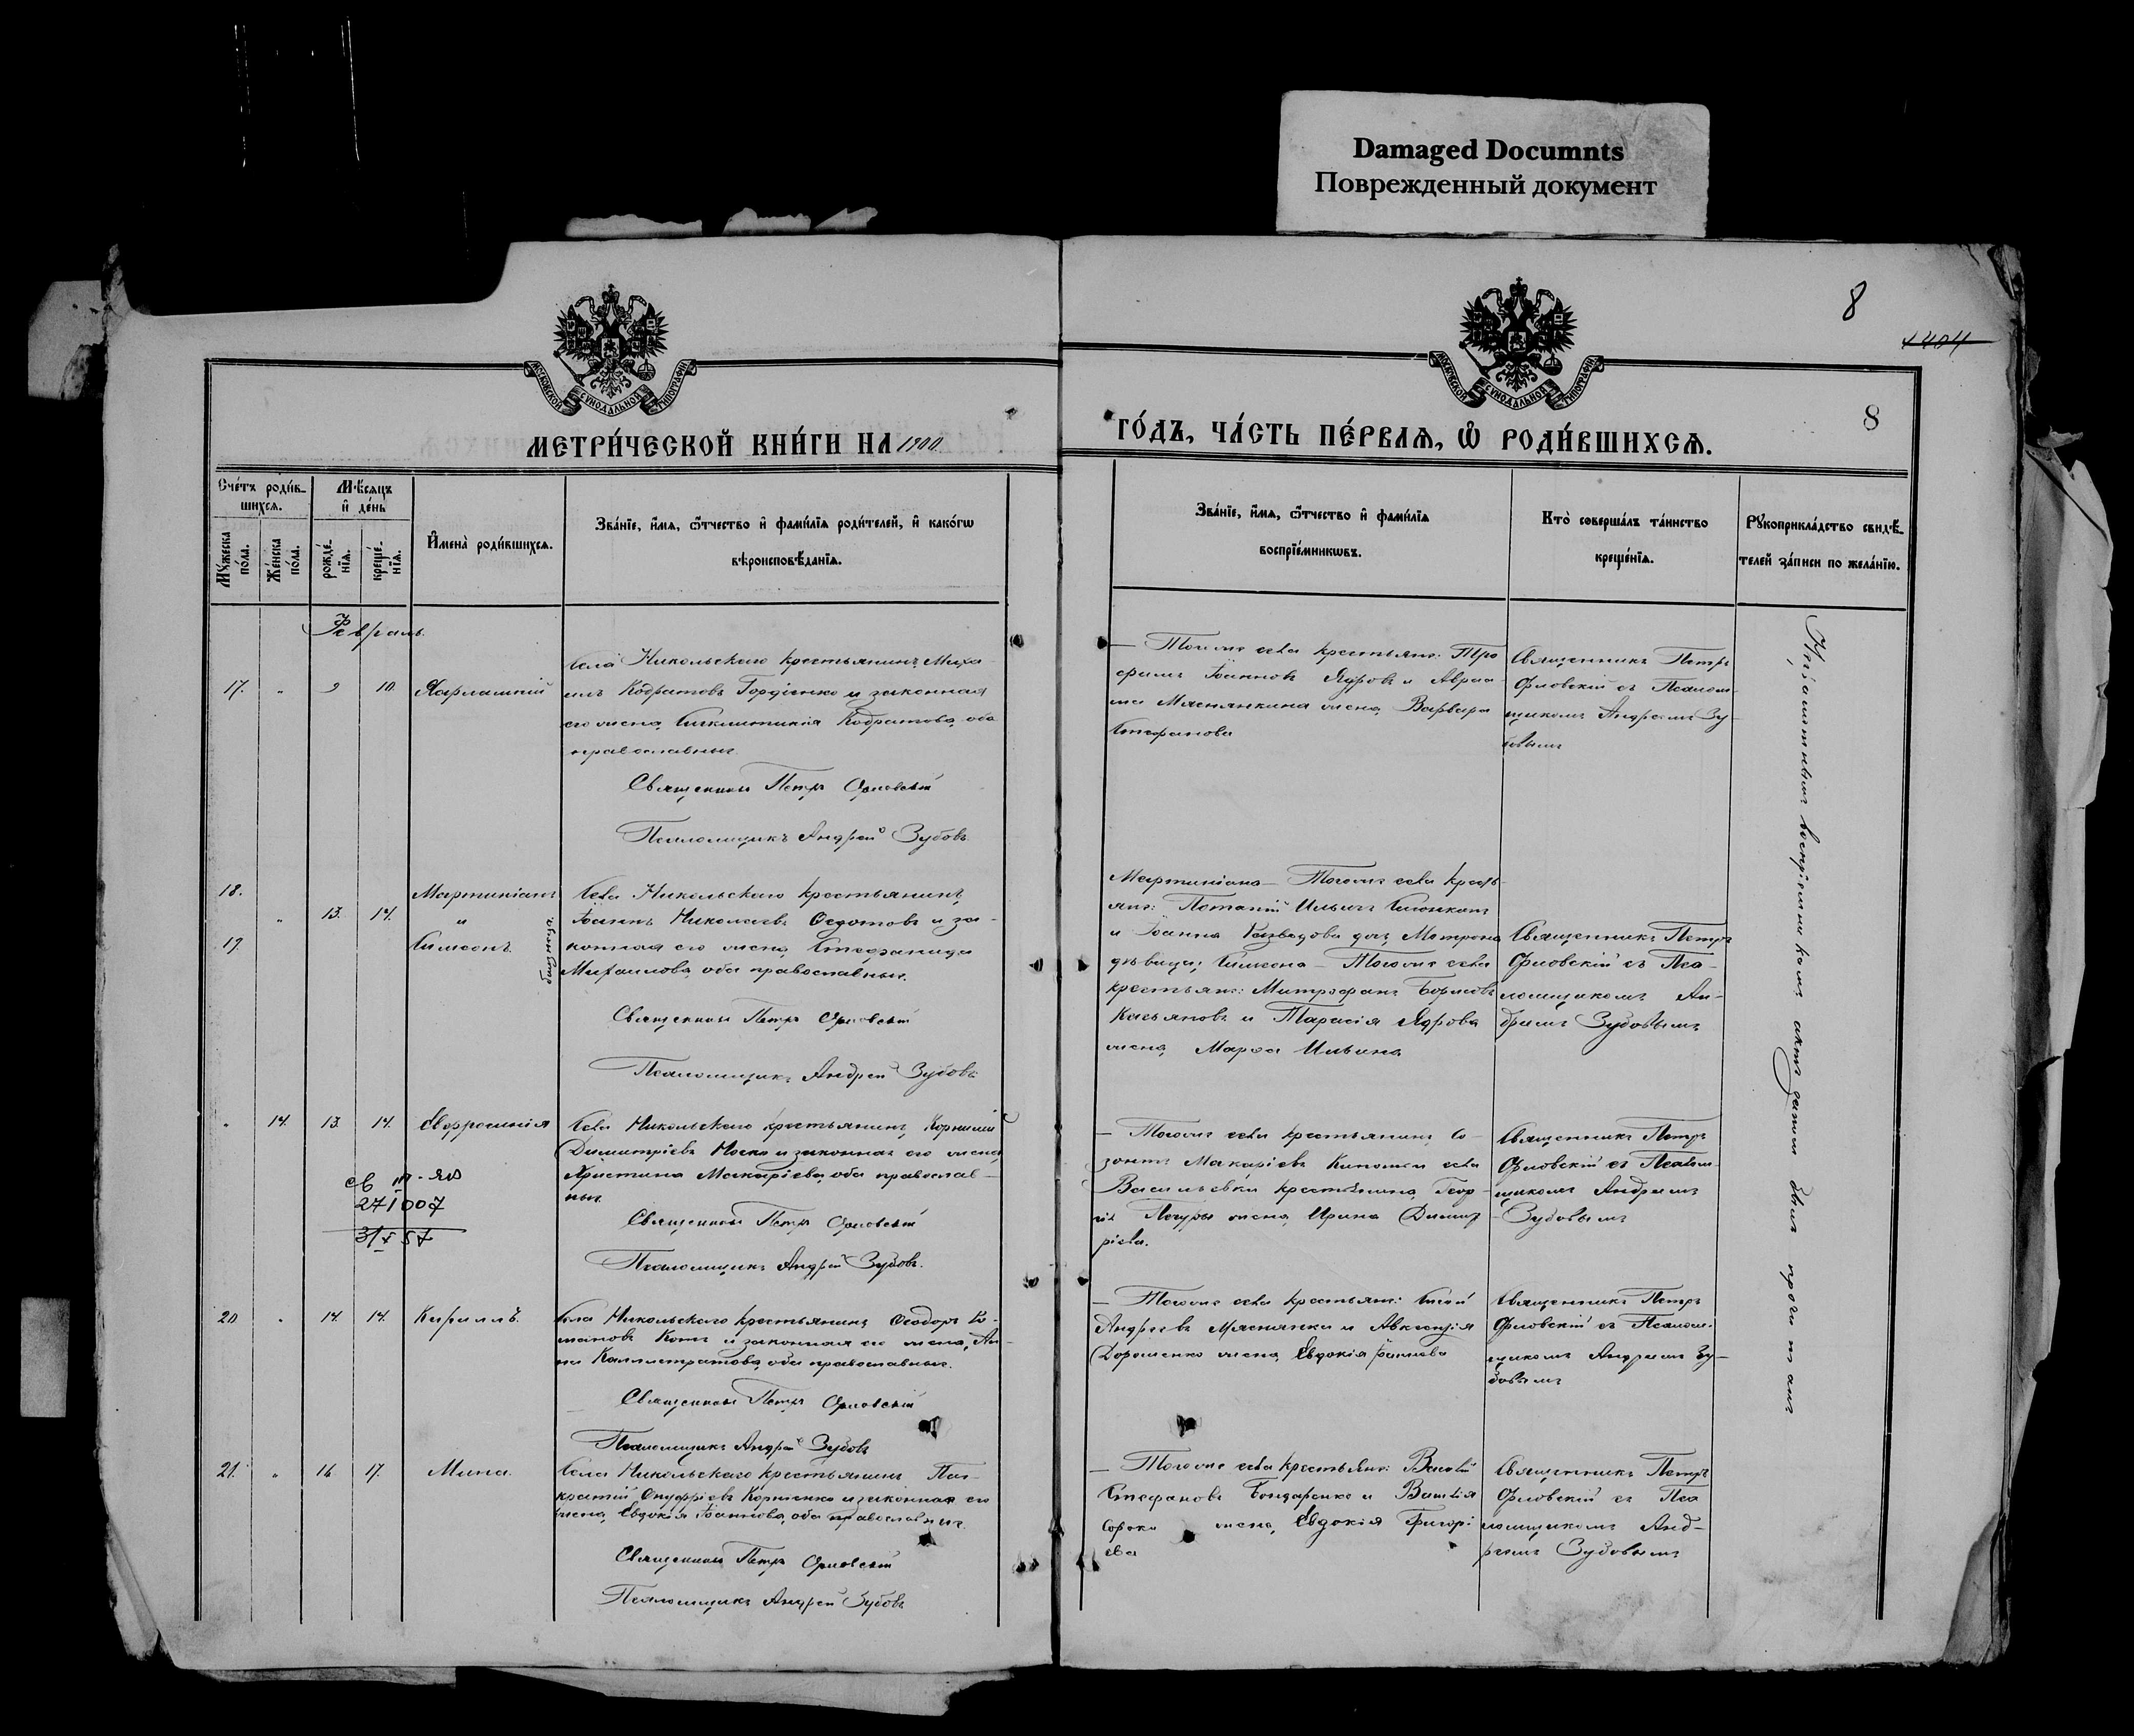 Damaged Documnts
Поврежденный документ
8
1404
8
МОСКОВСКОЙ СУНОДАЛЬНОЙ ТИПОГРАФИИ
МОСКОВСКОЙ СУНОДАЛЬНОЙ ТИПОГРАФИИ
МЕТРИ́ЧЕСКОЙ КНИ́ГИ НА 1900
ГО́ДЪ, ЧА́СТЬ ПЕ́РВАѦ, Ѽ РОДИ́ВШИХСѦ.
Сче́тъ роди́в-
шихсѧ.
Мѣ́сѧцъ
и҆ де́нь
Мꙋ́жеска по́ла.
Же́нска по́ла.
рожде́-
нїѧ.
креще́-
нїѧ.
И҆мена̀ роди́вшихсѧ.
Зва́нїе, и҆́мѧ, ѻ҆́тчество и҆ фами́лїѧ роди́телей, и҆ како́гѡ
вѣроисповѣ́данїѧ.
Зва́нїе, и҆́мѧ, ѻ҆́тчество и҆ фами́лїѧ
воспрїе́мникѡвъ.
Кто̀ соверша́лъ та́инство
креще́нїѧ.
Рꙋкоприкла́дство свидѣ́-
телей за́писи по жела́нїю.
Февраль.
17. " 9 10. Харлампій
Села Никольскаго крестьянинъ Миха-
илъ Кодратовъ Гордіенко и законная
его жена Синклитикія Кодратова, оба
православные.
Священникъ Петръ Орловскій
Псаломщикъ Андрей Зубовъ
— Тогоже села крестьяне: Тро
фимъ Іоанновъ Ядровъ и Авраа-
ма Мяснянкина жена Варвара
Стефанова
Священникъ Петръ
Орловскій съ Псалом-
щикомъ Андреемъ Зу-
бовымъ
18.
19
" 13. 14.
Мартиніанъ
и
Симеонъ.
близнецы
Села Никольскаго крестьянинъ
Іоаннъ Николаевъ Ѳедотовъ и за-
конная его жена Стефанида
Михаилова, оба православные.
Священникъ Петръ Орловскій
Псаломщикъ Андрей Зубовъ
Мартиніана — Тогоже села кресть-
яне: Потапій Ильинъ
и Іоанна дочь Матрона
дѣвица; Симеона — Тогоже села
крестьяне: Митрофанъ Борисовъ
Касьяновъ и Тарасія Ядрова
жена Марѳа Ильина
Священникъ Петръ
Орловскій съ Пса-
ломщикомъ Ан-
дреемъ Зубовымъ
" 14. 13. 14. Евфросинія
Села Никольскаго крестьянинъ Корнилій
Димитріевъ Носко и законная его жена
Христина Макаріева, оба православ-
ные.
Священникъ Петръ Орловскій
Псаломщикъ Андрей Зубовъ.
271007
— Тогоже села крестьянинъ Со-
зонтъ Макаріевъ и села
Васильевки крестьянина Геор-
гія жена Ирина Димит
ріева.
Священникъ Петръ
Орловскій съ Псалом-
щикомъ Андреемъ
Зубовымъ
20. " 14. 14. Кириллъ.
Села Никольскаго крестьянинъ Ѳеодоръ Ро-
мановъ Котъ и законная его жена Ан-
на Каллистратова, оба православные.
Священникъ Петръ Орловскій
Псаломщикъ Андрей Зубовъ
— Тогоже села крестьяне:
Андреевъ Мяснянка и Авксентія
Дорошенко жена Евдокія Іоаннова
Священникъ Петръ
Орловскій съ Псалом-
щикомъ Андреемъ Зу-
бовымъ
21. " 16. 17. Мина.
Села Никольскаго крестьянинъ Пан-
кратій Онуфріевъ Корніенко и законная его
жена Евдокія Іоаннова, оба православные.
Священникъ Петръ Орловскій
Псаломщикъ Андрей Зубовъ
— Тогоже села крестьяне: Василій
Стефановъ Бондаренко и Василія
Сороки жена Евдокія Григорі
ева
Священникъ Петръ
Орловскій съ Пса
ломщикомъ Анд-
реемъ Зубовымъ
Неграмотнымъ воспріемникамъ актъ сей былъ прочитанъ